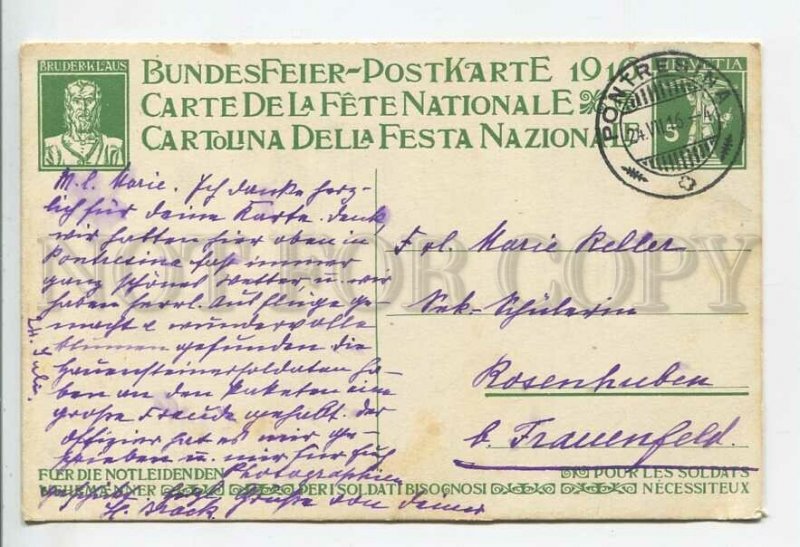 BRUDER·KLAUS
BUNDESFEIER-POSTKARTE 1916
CARTE DE LA FÊTE NATIONALE
CARTOLINA DELLA FESTA NAZIONALE
HELVETIA
5
PONTRESINA
24.VII.16.-4
M. l. Marie. Ich danke herz-
lich für deine Karte. denk
wir hatten hier oben in
Pontresina fast immer
ganz schönes Wetter, u. wir
haben herrl. Ausflüge ge-
macht & wundervolle
Blumen gefunden die
Hauensteinersoldaten ha-
ben an den Paketen eine
große Freude gehabt. der
Offizier hat es mir ge-
schrieben u. mir für Euch
Photographien
Grüße von Deiner
24. Juli.
Frl. Marie Keller
Sek-Schülerin
Rosenhuben
b. Frauenfeld.
FÜR DIE NOTLEIDENDEN
WEHRMÄNNER
PER I SOLDATI BISOGNOSI
POUR LES SOLDATS
NÉCESSITEUX
NOT FOR COPY